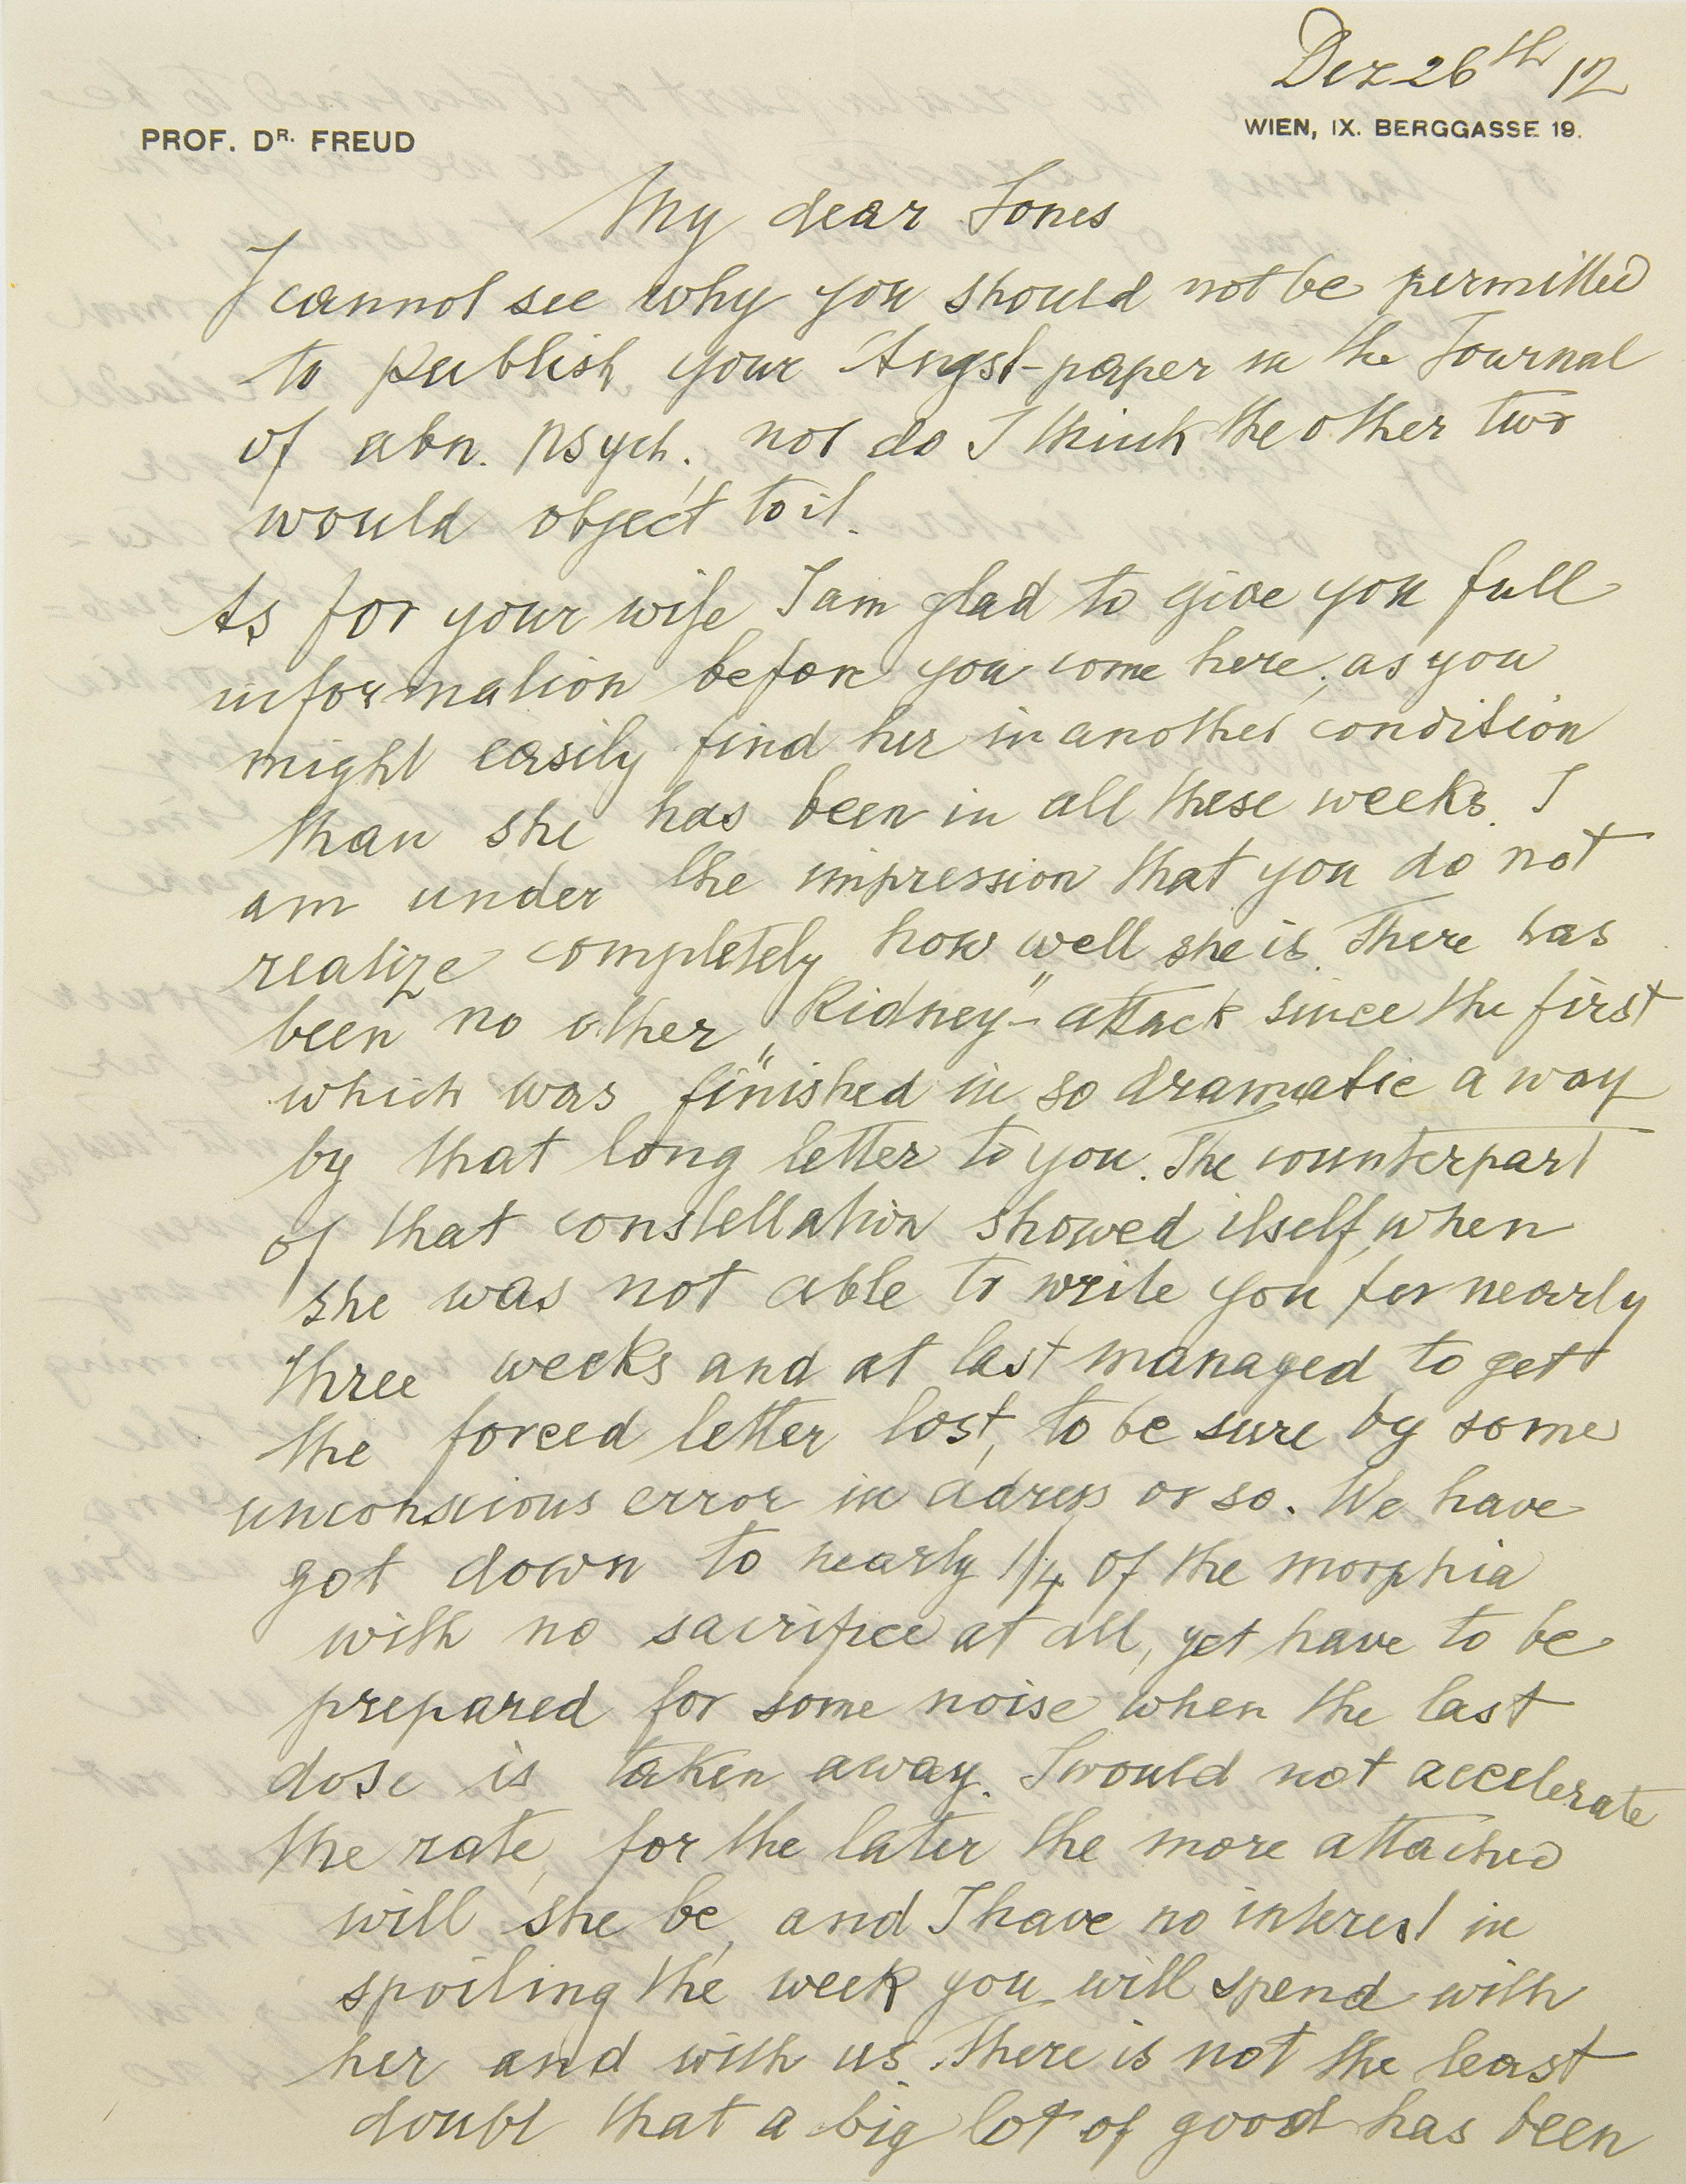 Dez 26th 12
PROF. DR. FREUD
WIEN, IX. BERGGASSE 19.
My dear Jones
I cannot see why you should not be permitted
to publish your Angst-paper in the Journal
of abn. Psych., nor do I think the other two
would object to it.
As for your wife I am glad to give you full
information before you come here, as you
might easily find her in another condition
than she has been in all these weeks. I
am under the impression that you do not
realize completely how well she is. There has
been no other „Kidney"-attack since the first
which was finished in so dramatic a way
by that long letter to you. The counterpart
of that constellation showed itself, when
she was not able to write you for nearly
three weeks and at last managed to get
the forced letter lost, to be sure by some
unconscious error in adress or so. We have
got down to nearly 1/4 of the morphia
with no sacrifice at all, yet have to be
prepared for some noise when the last
dose is taken away. I would not accelerate
the rate, for the later the more attached
will she be, and I have no interest in
spoiling the week you will spend with
her and with us. There is not the least
doubt that a big lot of good has been